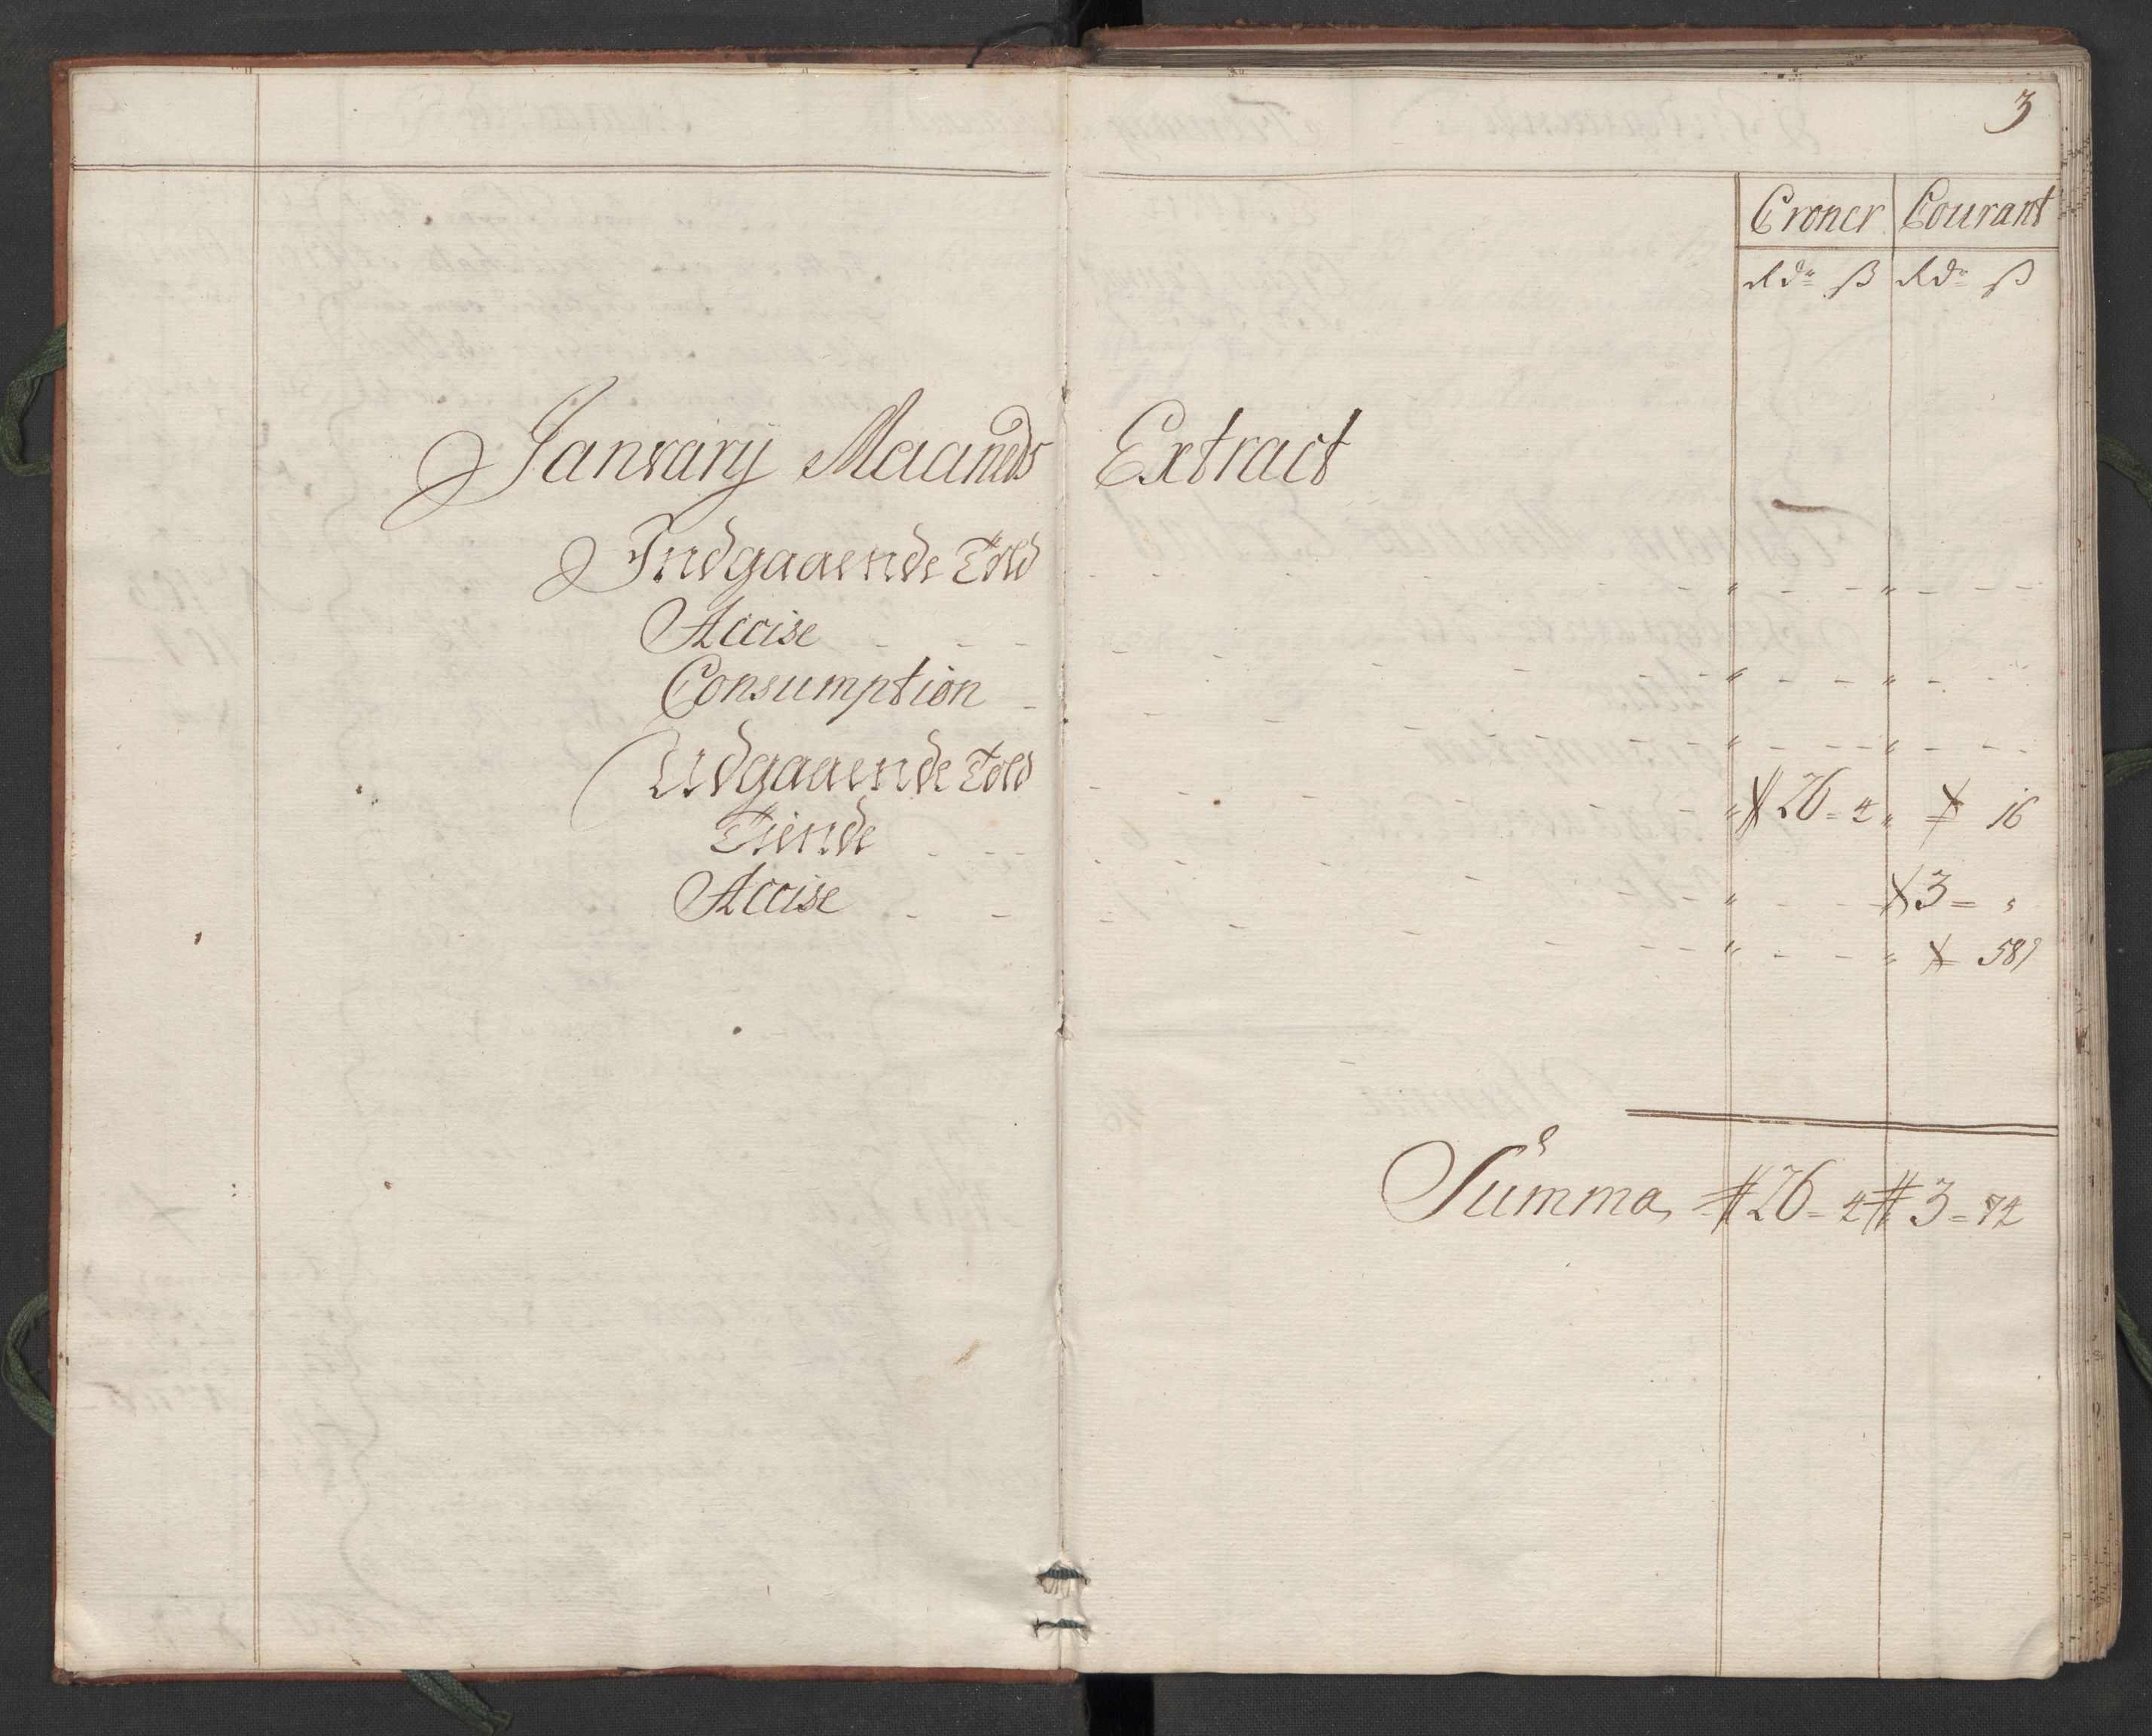 3
Croner Courant
Rdr ß Rdr ß
January Maaneds Extract
Indgaaende Told - - - " - - - " - - -
Accise - - - " - - - " - - -
Consumption - - - " - - - " - - -
Udgaaende Told - - - " 26 = 4 " 16
Tiende - - - " - - - 3 = "
Accise - - - " - - - " 58
Summa 26 = 4 3 = 74